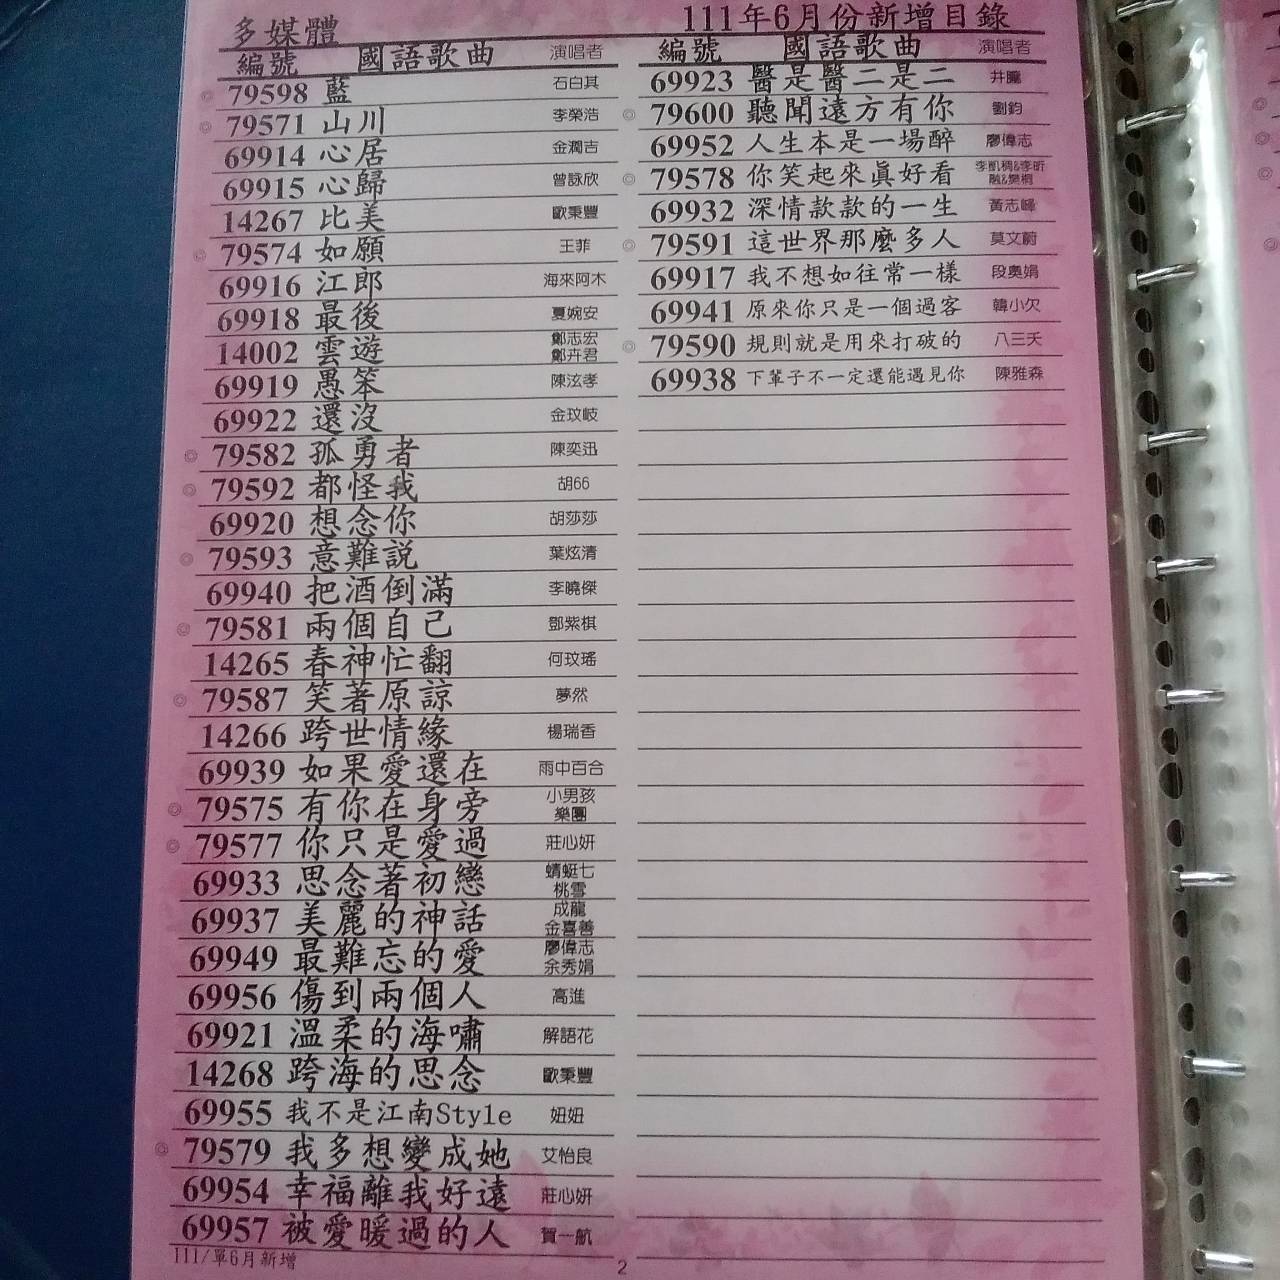 多媒體
111年6月份新增目錄
編號 國語歌曲 演唱者
◎ 79598 藍 石白其
◎ 79571 山川 李榮浩
69914 心居 金潤吉
69915 心歸 曾詠欣
14267 比美 歐秉豐
◎ 79574 如願 王菲
69916 江郎 海來阿木
69918 最後 夏婉安
14002 雲遊 鄭志宏
鄭卉君
69919 愚笨 陳泫孝
69922 還沒 金玟岐
◎ 79582 孤勇者 陳奕迅
◎ 79592 都怪我 胡66
69920 想念你 胡莎莎
◎ 79593 意難說 葉炫清
69940 把酒倒滿 李曉傑
◎ 79581 兩個自己 鄧紫棋
14265 春神忙翻 何玟瑤
◎ 79587 笑著原諒 夢然
14266 跨世情緣 楊瑞香
69939 如果愛還在 雨中百合
◎ 79575 有你在身旁 小男孩
樂團
◎ 79577 你只是愛過 莊心妍
69933 思念著初戀 蜻蜓七
桃雪
69937 美麗的神話 成龍
金喜善
69949 最難忘的愛 廖偉志
余秀娟
69956 傷到兩個人 高進
69921 溫柔的海嘯 解語花
14268 跨海的思念 歐秉豐
69955 我不是江南Style 妞妞
◎ 79579 我多想變成她 艾怡良
69954 幸福離我好遠 莊心妍
69957 被愛暖過的人 賀一航
編號 國語歌曲 演唱者
69923 醫是醫二是二 井朧
◎ 79600 聽聞遠方有你 劉鈞
69952 人生本是一場醉 廖偉志
◎ 79578 你笑起來真好看 李凱稠&李昕
融&樊桐
69932 深情款款的一生 黃志峰
◎ 79591 這世界那麼多人 莫文蔚
69917 我不想如往常一樣 段奧娟
69941 原來你只是一個過客 韓小欠
◎ 79590 規則就是用來打破的 八三夭
69938 下輩子不一定還能遇見你 陳雅森
111/單6月新增
2